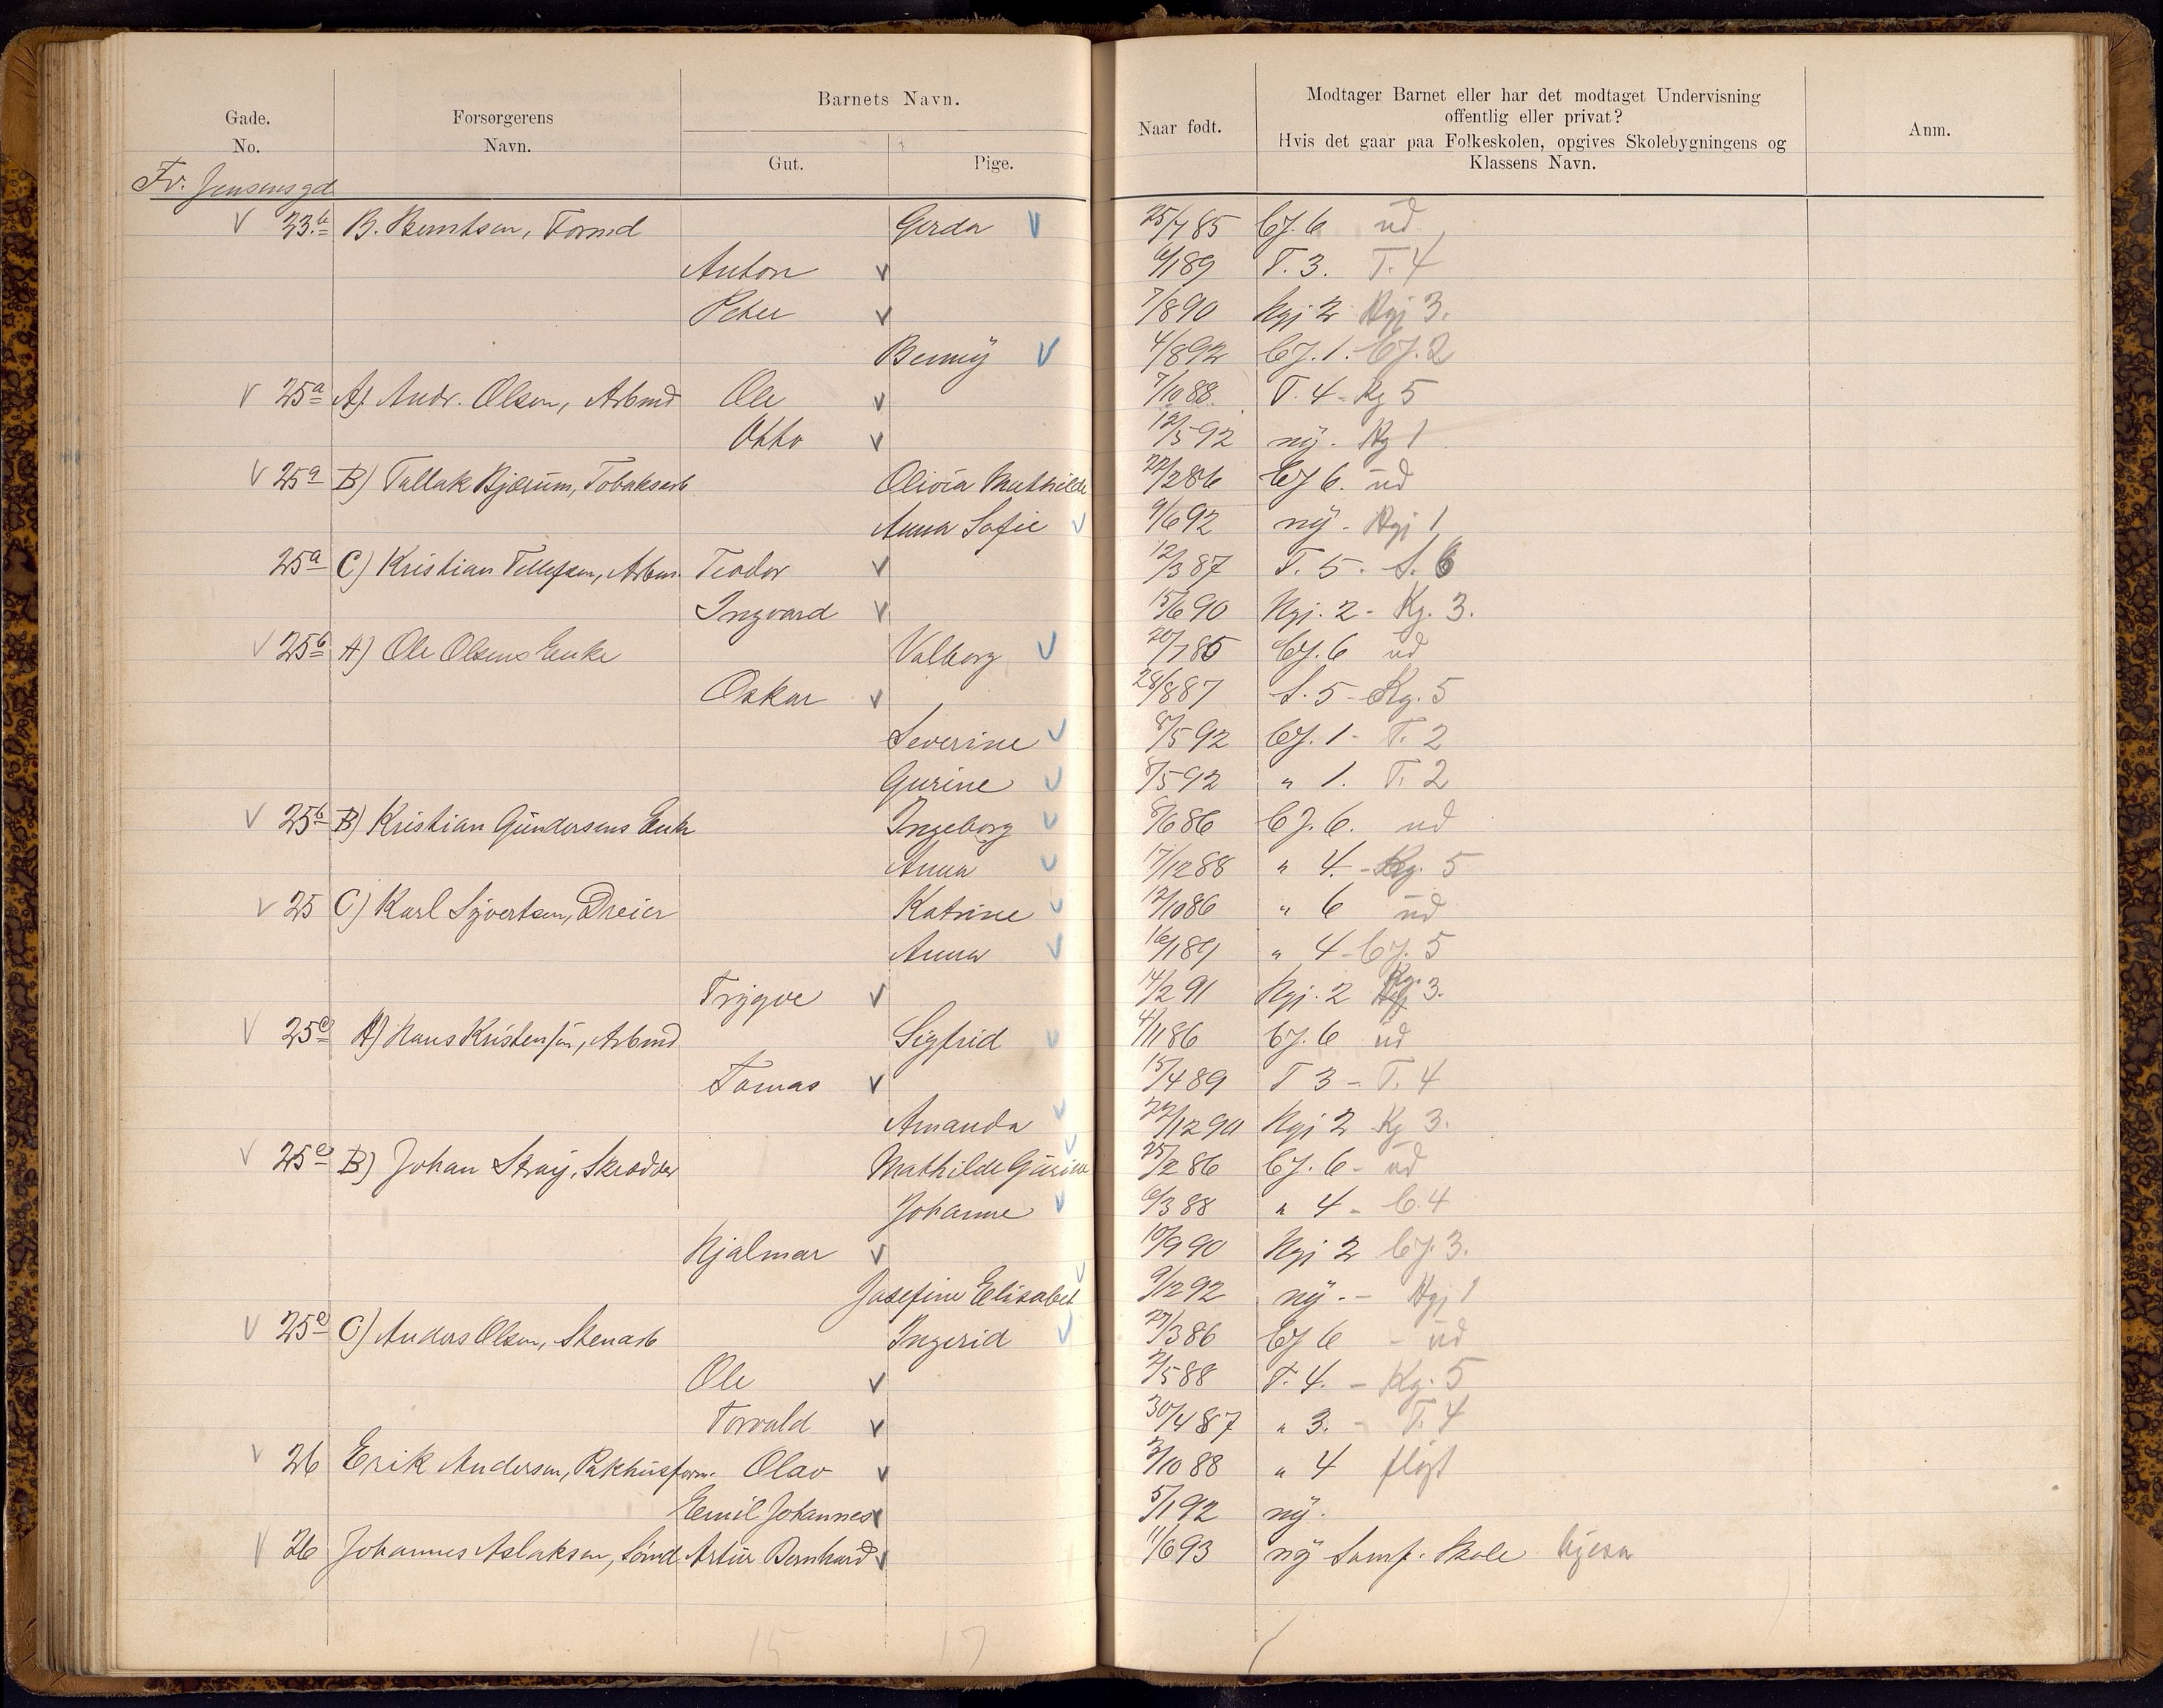 Gade.
No.
Forsørgerens
Navn.
Barnets Navn.
Gut.
Pige.
Naar født.
Modtager Barnet eller har det modtaget Undervisning
offentlig eller privat?
Hvis det gaar paa Folkeskolen, opgives Skolebygningens og
Klassens Navn.
Anm.
Fr. Jensensgd
23.b B. Berntsen, Formd Gerda 25/7 85 CJ. 6 ud
Anton 6/1 89 T. 3. T. 4
Peter 7/8 90 Hgj 2 Hgj 3.
Benny 4/8 92 CJ. 1. - CJ. 2
25a A) Andr. Olsen, Arbmd Ole 7/10 88. T. 4 - Kg 5
Otto 12/5 92 ny. Hg 1
25a B) Tallak Bjorum, Tobaksarb Olivia Mathilde 22/2 86 CJ 6. ud
Anna Sofie 9/6 92 ny. Hgj 1
25a C) Kristian Tellefsen, Arbm. Teodor 12/3 87 T. 5. S. 6
Ingvard 15/6 90 Hgj. 2 - Kg. 3.
25b A) Ole Olsens Enke Valborg 20/7 85 CJ. 6 ud
Oskar 28/8 87 S. 5 - Kg. 5
Severine 8/5 92 CJ. 1 - T. 2
Gurine 8/5 92 " 1. T. 2
25b B) Kristian Gundersens Enke Ingeborg 8/6 86 CJ. 6. ud
Anna 17/12 88 " 4. - Kg. 5
25 C) Karl Syvertsen, Dreier Katrine 12/10 86 " 6 ud
Anna 16/1 89 " 4 - CJ. 5
Trygve 14/2 91 Hgj. 2 Kg. 3.
25c A) Hans Kristensen, Arbmd Sigfrid 4/11 86 CJ. 6 ud
Tomas 15/4 89 T 3 - T. 4
Amanda 22/12 90 Hgj 2 Kg 3.
25c B) Johan Stray, Skrædder Mathilde Gurine 25/2 86 CJ. 6 - ud
Johanne 6/3 88 " 4 - C. 4
Hjalmar 10/9 90 Hgj 2 CJ. 3.
Josefine Elisabet 9/12 92 ny. - Hgj 1
25c C) Anders Olsen, Stenarb Ingerid 27/3 86 CJ 6 - ud
Ole 2/5 88 T. 4. - Kg. 5
Torvald 30/4 87 " 3. - T. 4
26 Erik Andersen, Pakhusform. Olav 2/10 88 " 4 fløjt
Emil Johannes 5/1 92 ny.
26 Johannes Aslaksen, Sømd Artur Bernhard 11/6 93 ny Samf. Skole
15 17